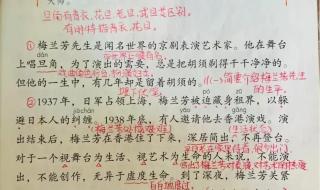 大师。
旦角有青衣、花旦、老旦、武旦等区别。
有时特指青衣、花旦
①梅兰芳先生是闻名世界的京剧表演艺术家。他在舞台
上唱旦角,为了演出的需要,总是把胡须剃得干干净净的。
但他的一生中,有几年却是留着胡须的。
(一)简要介绍梅兰芳先生
的生平
②1937年,日军占领上海,梅兰芳被迫藏身租界,以躲
避日本人的纠缠。1938年底,有人邀他去香港演戏。演
出结束后,梅兰芳在香港住了下来,深居简出,不再登台。
对于一个视舞台为生活、视艺术为生命的人来说,不能演
出,不能创作,无异于虚度生命。到了深夜,梅兰芳关紧
白白地度过